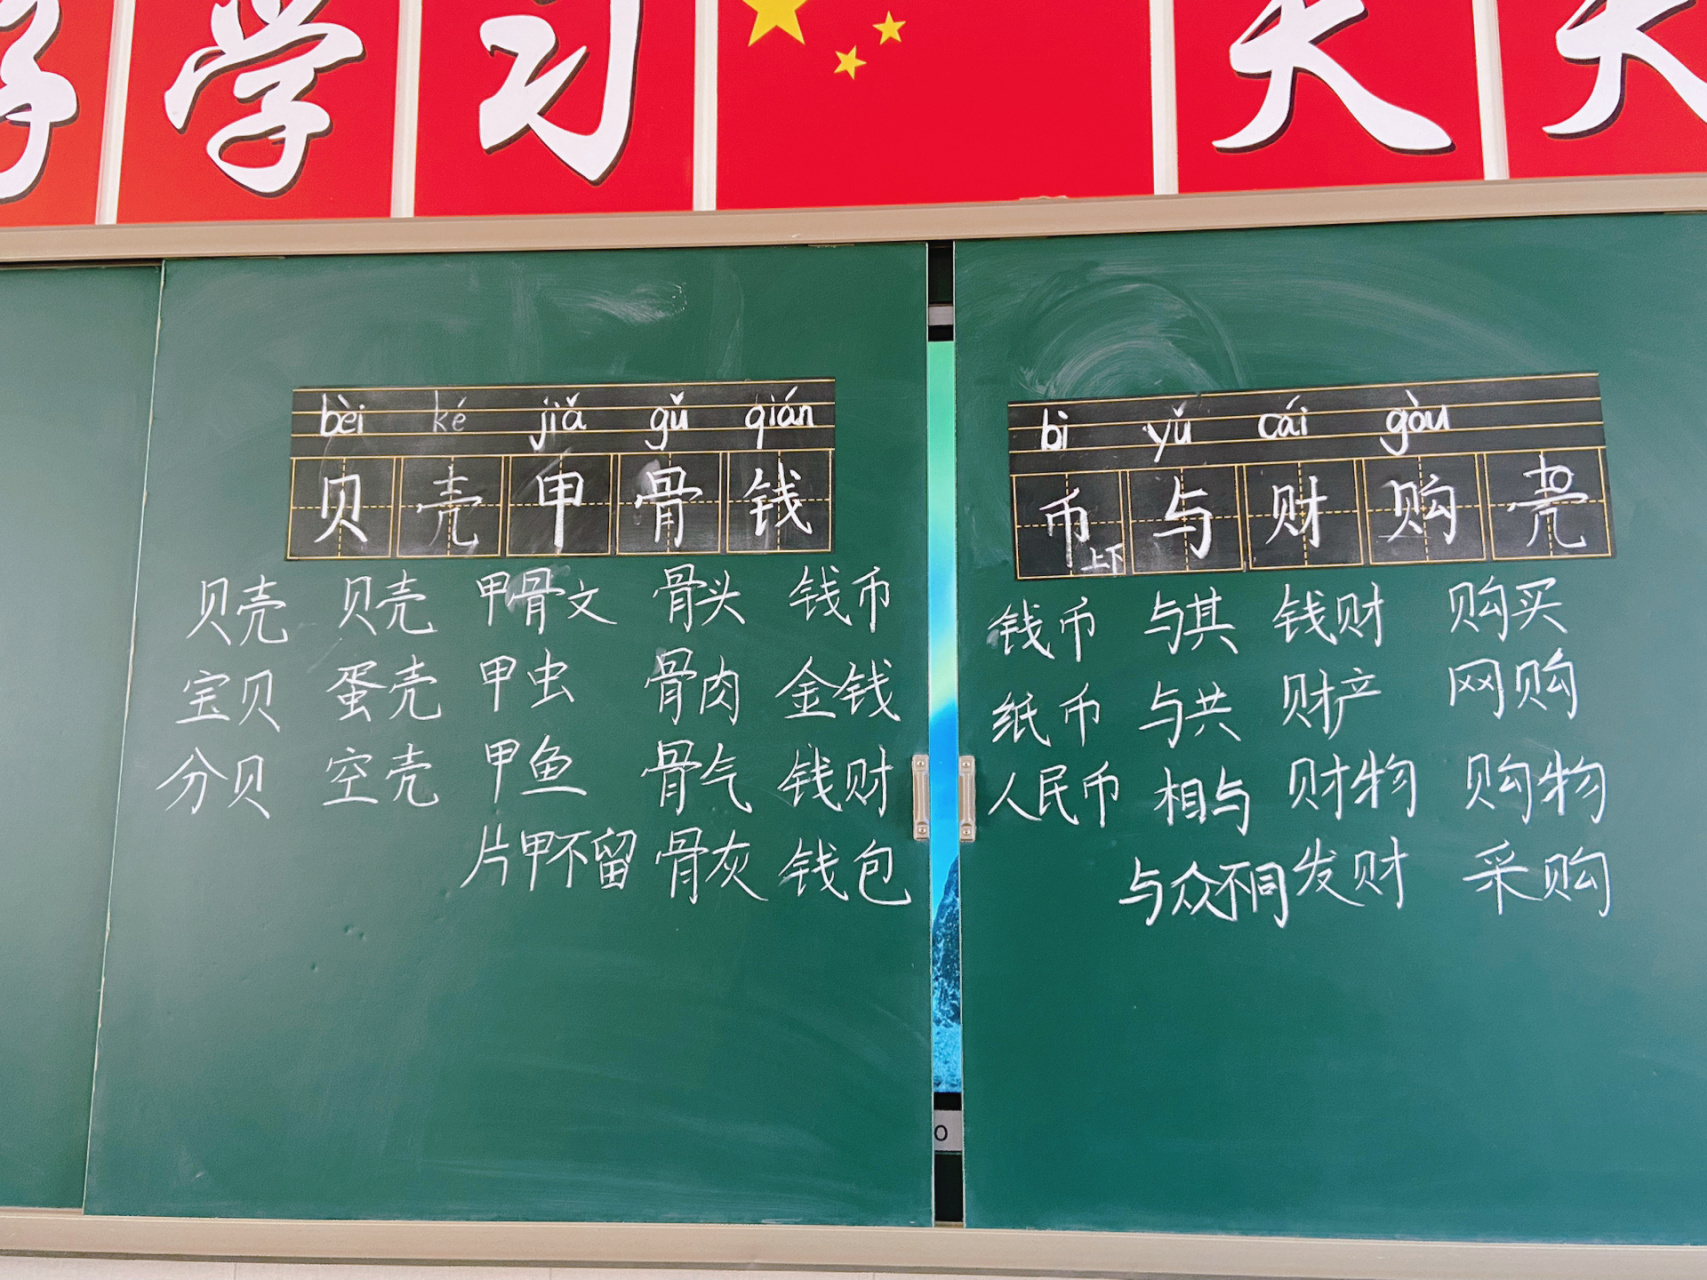 好学习 天天
bèi ké jiǎ gǔ qián
贝壳甲骨钱
贝壳 贝壳 甲骨文 骨头 钱币
宝贝 蛋壳 甲虫 骨肉 金钱
分贝 空壳 甲鱼 骨气 钱财
片甲不留 骨灰 钱包
bì yǔ cái gòu
币与财购壳
上下
钱币 与其 钱财 购买
纸币 与共 财产 网购
人民币 相与 财物 购物
与众不同 发财 采购